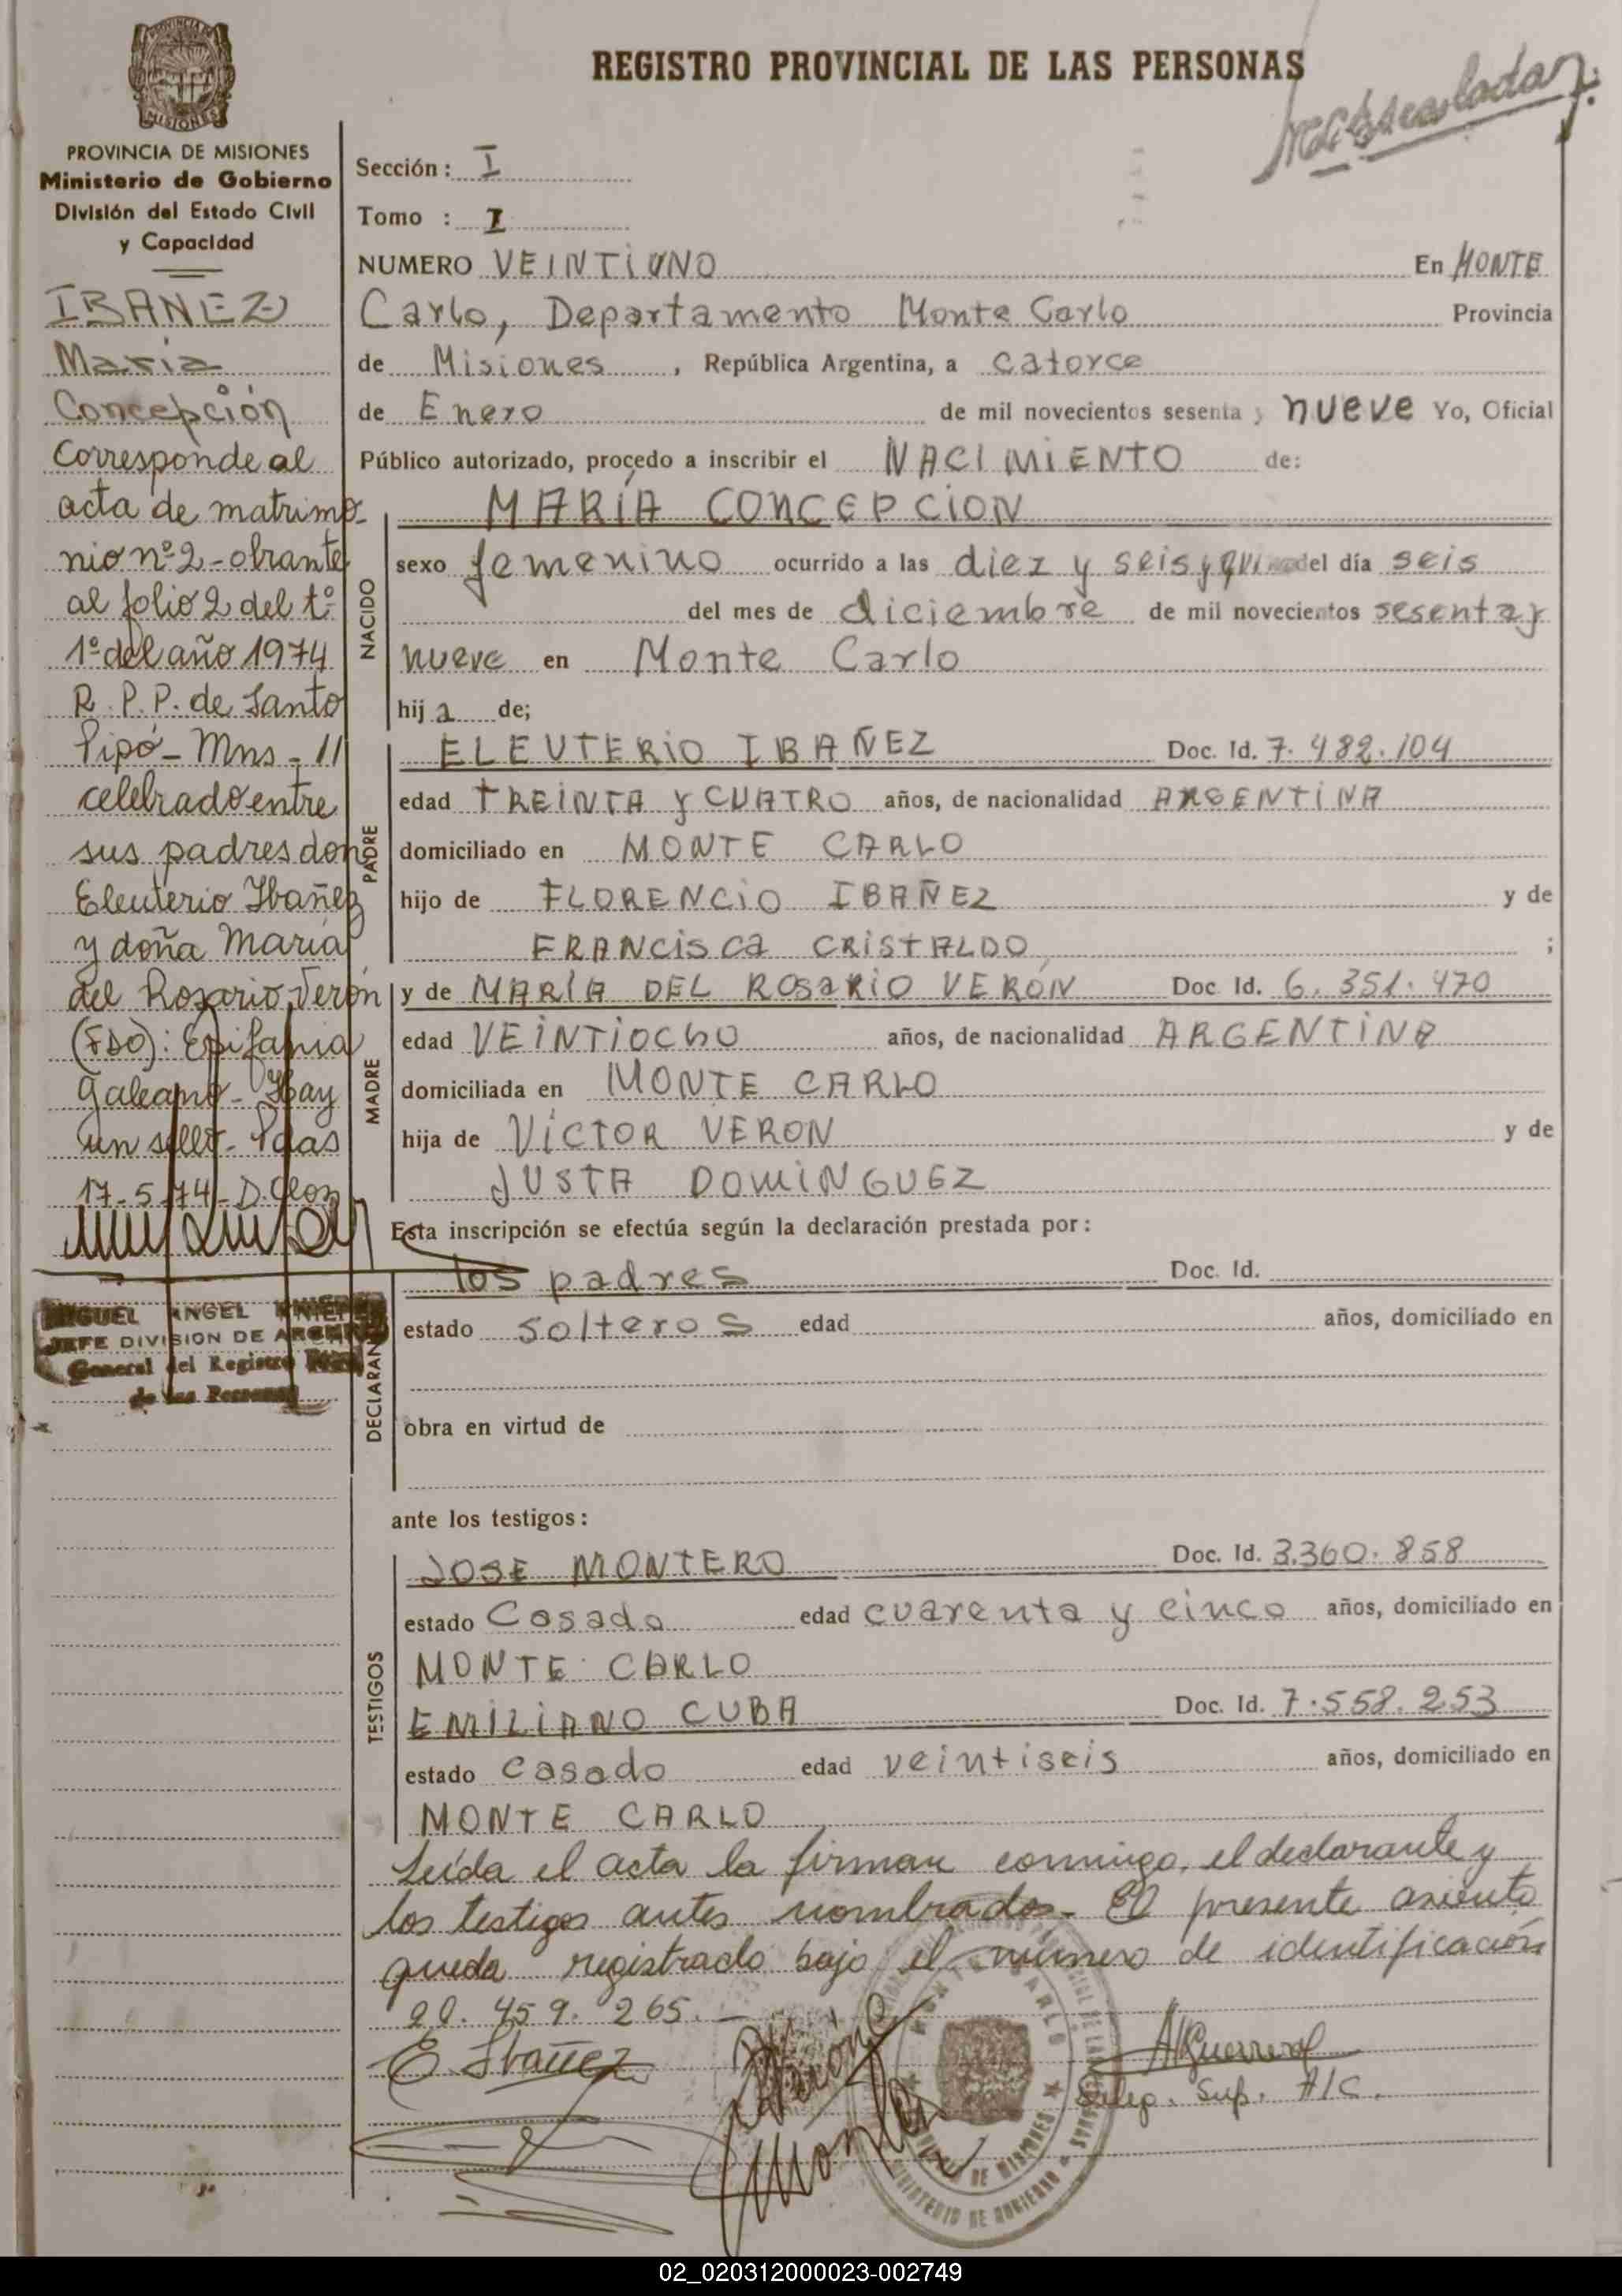 REGISTRO PROVINCIAL DE LAS PERSONAS
PROVINCIA DE MISIONES
Ministerio de Gobierno
División del Estado Civil
y Capacidad
IBAÑEZ
María
Concepción
Corresponde al
acta de matrimo-
nio nº 2 - obrante
al folio 2 del tº
1º del año 1974
R. P. P. de Santo
Pipó - Mns - 11
celebrado entre
sus padres don
Eleuterio Ibañez
y doña María
del Rosario Verón
(FDO): Epifania
Galeano - Hay
un sello - Pdas
17-5-74 -
MIGUEL ANGEL
JEFE DIVISION DE
General del Registro
de las Personas
Sección: I
Tomo : I
NUMERO VEINTIUNO En MONTE
Carlo, Departamento Monte Carlo Provincia
de Misiones, República Argentina, a catorce
de Enero de mil novecientos sesenta y nueve Yo, Oficial
Público autorizado, procedo a inscribir el NACIMIENTO de:
NACIDO
MARÍA CONCEPCION
sexo femenino ocurrido a las diez y seis y del día seis
del mes de diciembre de mil novecientos sesenta y
nueve en Monte Carlo
hija de;
PADRE
ELEUTERIO IBAÑEZ Doc. Id. 7.482.104
edad TREINTA Y CUATRO años, de nacionalidad ARGENTINA
domiciliado en MONTE CARLO
hijo de FLORENCIO IBAÑEZ y de
FRANCISCA CRISTALDO ;
MADRE
y de MARÍA DEL ROSARIO VERÓN Doc. Id. 6.351.470
edad VEINTIOCHO años, de nacionalidad ARGENTINA
domiciliada en MONTE CARLO
hija de VÍCTOR VERON y de
JUSTA DOMINGUEZ
Esta inscripción se efectúa según la declaración prestada por:
DECLARAN
los padres Doc. Id.
estado solteros edad años, domiciliado en
obra en virtud de
ante los testigos:
TESTIGOS
JOSE MONTERO Doc. Id. 3.360.858
estado Casado edad cuarenta y cinco años, domiciliado en
MONTE CARLO
EMILIANO CUBA Doc. Id. 7.558.253
estado Casado edad veintiseis años, domiciliado en
MONTE CARLO
Leída el acta la firman conmigo, el declarante y
los testigos antes nombrados - El presente asiento
queda registrado bajo el número de identificación
20.459.265.-
E. Ibañez
Deleg. Sup. A/C.
MONTE CARLO
MINISTERIO DE GOBIERNO
02_020312000023-002749